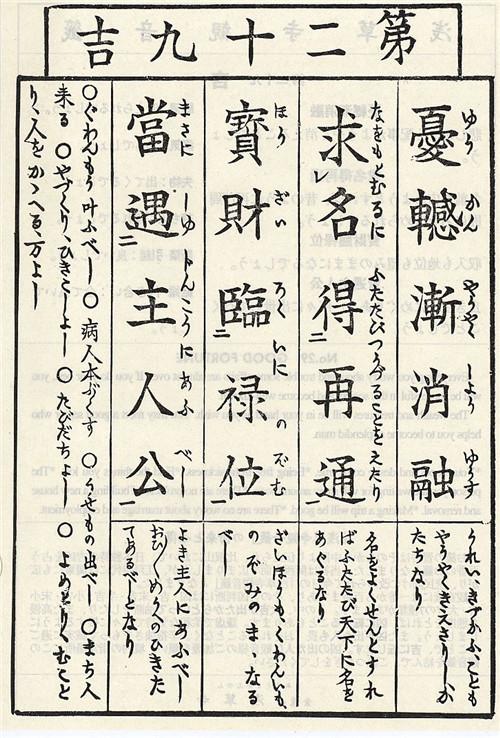 第二十九吉
憂轗漸消融
ゆう かん やうやく しよう ゆうす
うれい、きづかふことも
やうやくきえさりし、か
たちなり
求レ名得二再通一
なをもとむ に ふたたびつうずることをえたり
名をよくせんとすれ
ばふたたび天下に名を
あぐるなり
寶財臨二禄位一
ほう ざい ろくいに のぞむ
ざいほうも、くわんいも、
のぞみまゝなる
べし
當遇二主人公一
まさに しゆじんこうに あふ べし
よき主人にあうべし
おひ、めうへのひきた
てあるべきとなり
○ぐわんもう叶ふべし ○病人本ぶくす ○うせもの出べし ○まち人
来る ○やづくり、ひきこしよし ○たびだちよし ○よめどり、むことり、
人をかゝへる、万よし